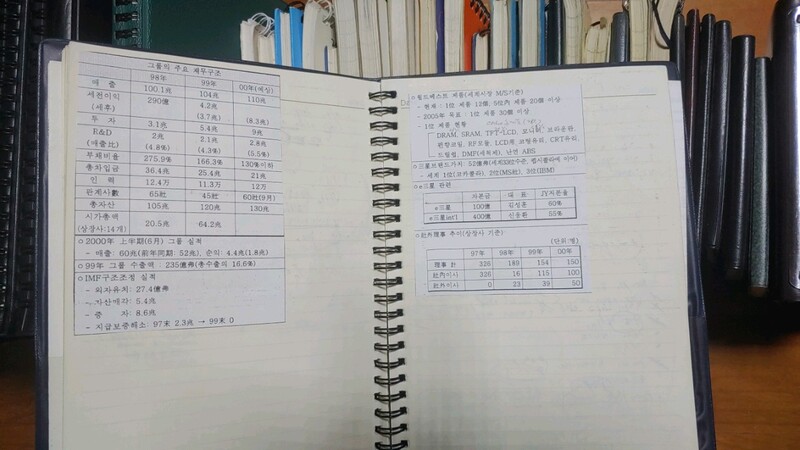 그룹의 주요 재무구조
98年 99年 00年(예상)
매 출 100.1兆 104兆 110兆
세전이익 290億 4.2兆
(세후) (3.7兆) (8.3兆)
투 자 3.1兆 5.4兆 9兆
R&D 2兆 2.1兆 2.8兆
(매출比) (4.8%) (4.3%) (5.5%)
부채비율 275.9% 166.3% 130%이하
총차입금 36.4兆 25.4兆 21兆
인 력 12.4万 11.3万 12万
관계사數 65社 45社 60社(9月)
총자산 105兆 120兆 130兆
시가총액 20.5兆 64.2兆
(상장사:14개)
○2000年 上半期(6月) 그룹 실적
- 매출: 60兆(前年同期: 52兆), 순이익: 4.4兆(1.8兆)
○99年 그룹 수출액 : 235億弗(총수출의 16.6%)
○IMF구조조정 실적
- 외자유치: 27.4億弗
- 자산매각: 5.4兆
- 증 자: 8.6兆
- 지급보증해소: 97末 2.3兆 → 99末 0
○월드베스트 제품(세계시장 M/S기준)
- 현재 : 1위 제품 12個, 5位內 제품 20個 이상
- 2005年 목표 : 1위 제품 30個 이상
- 1위 제품 현황
DRAM, SRAM, TFT-LCD, 모니터, 브라운관,
편향코일, RF모듈, LCD用 코팅유리, CRT유리,
드릴쉽, DMF(세척제), 난연 ABS
○三星브랜드가치: 52億弗
- 세계 1위(코카콜라), 2위(MS社), 3위(IBM)
○e三星 관련
자본금 대 표 JY지분율
e三星 100億 김성훈 60%
e三星int'l 400億 신응환 55%
○社外理事 추이(상장사 기준)
(단위:명)
97年 98年 99年 00年
理事 計 326 189 154 150
社內이사 326 16 115 100
社外이사 0 23 39 50